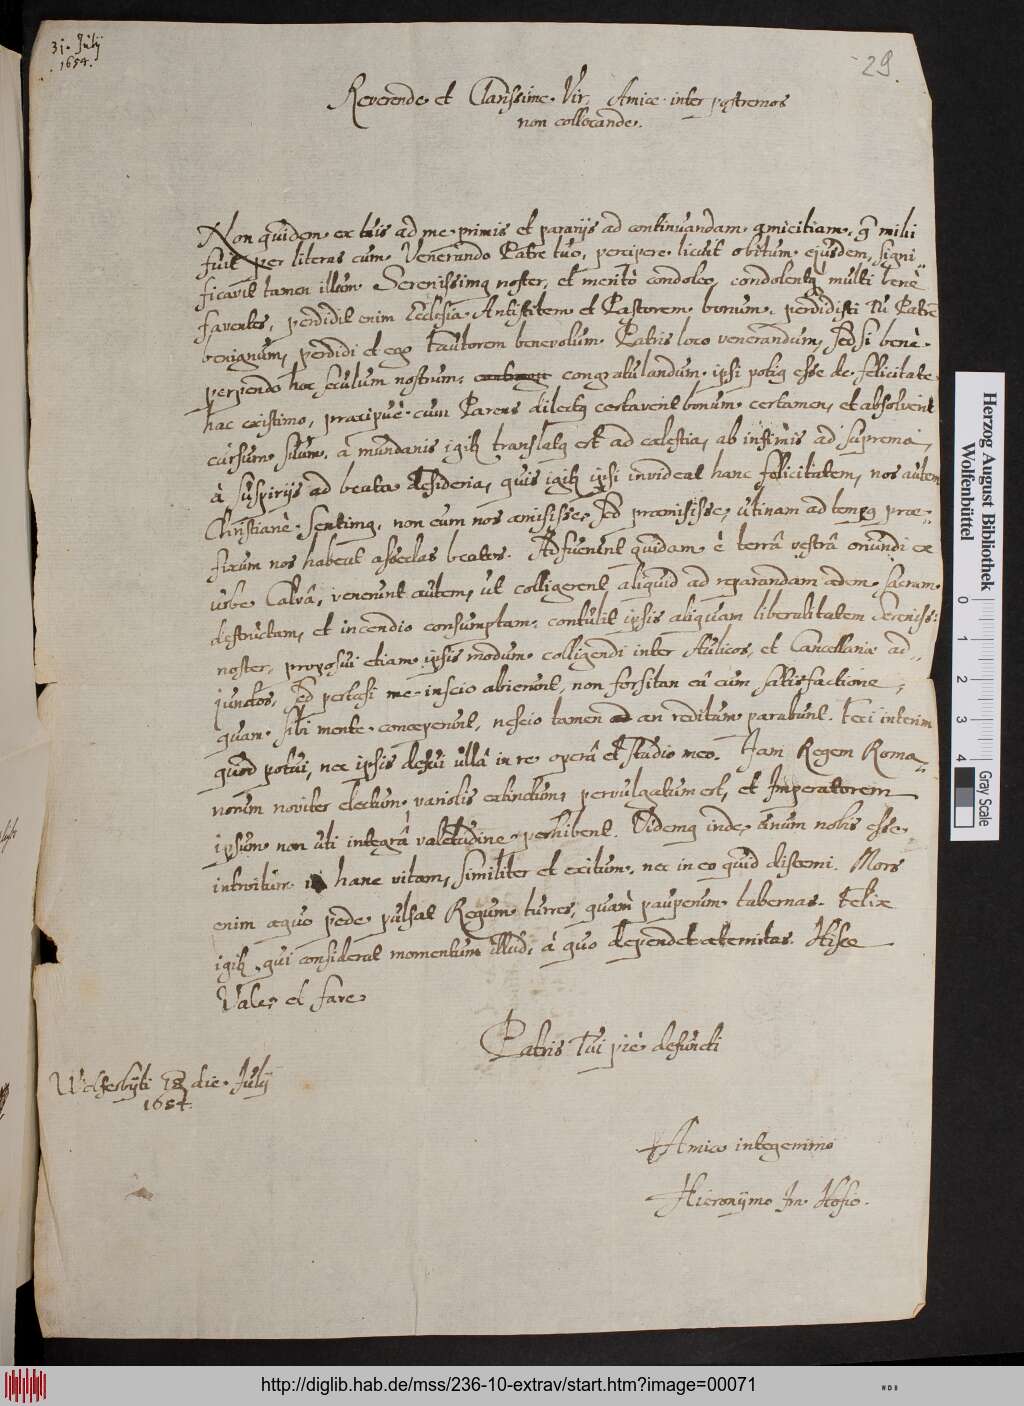 31. Julij
1654.
29.
Reverende et Clarissime Vir, Amice inter postremos
non collocande.
Non quidem ex tuis ad me primis et paratijs ad continuandam amicitiam, q̃ mihi
fuit per literas cum Venerando Patre tuo, percipere licuit obitum ejusdem, signi-
ficavit tamen illum Serenissimq noster, et meritò condoleo, condolentq multi benè
faventes, perdidit enim Ecclesia Antistitem et Pastorem bonum, perdidisti Tu Patrē
benignum, perdidi et ego Fautorem benevolum Patris loco venerandum, sed si benè
perpendo hoc seculum nostrum, congratulandum ipsi potiq esse de felicitate
hac existimo, præcipuè cum Parens dilectq certaverit bonum certamen, et absolverit
cursum suum, à mundanis igitr translatq est ad cælestia, ab infimis ad suprema,
à suspirijs ad beata desideria, quis igitr ipsi invideat hanc felicitatem, nos autem
Christianè sentimq, non eum nos amisisse, sed præmisisse, utinam ad tempq præ-
fixum nos habeat asseclas beatos. Adfuerunt quidam è terrâ vestrâ oriundi ex
urbe Calvâ, venerunt autem, ut colligerent aliquid ad reparandam ædem sacram
destructam, et incendio consumptam, contulit ipsis aliquam liberalitatem Sereniss:
noster, proposui etiam ipsis modum colligendi inter Aulicos, et Cancellariæ ad-
junctos, sed pertæsi me inscio abierunt, non forsitan eâ cum satisfactione,
quam sibi mente conceperunt, nescio tamen an reditum parabunt. Feci interim
quod potui, nec ipsis defui ullâ in re operâ et studio meo. Jam Regem Roma-
norum noviter electum variolis extinctum, pervulgatum est, et Imperatorem
ipsum non uti integrâ valetudine perhibent. Videmq inde unum nobis esse
introitum in hanc vitam, similiter et exitum, nec in eo quid discerni. Mors
enim æquo pede pulsat Regum turres, quam pauperum tabernas. Felix
igitr, qui considerat momentum illud, à quo dependet æternitas. Hisce
Vale, et fave
Patris Tui piè defuncti
Wolferbyti 18 die Julij
1654.
Amico integerrimo
Hieronijmo Im Hofio.
Herzog August Bibliothek
Wolfenbüttel
0 1 2 3 4
Gray Scale
http://diglib.hab.de/mss/236-10-extrav/start.htm?image=00071